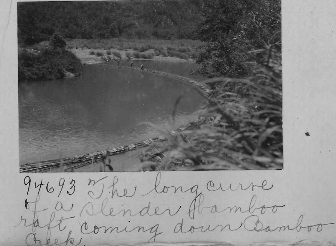 94693 "The long curve
of a slender bamboo
raft, coming down Bamboo
Creek